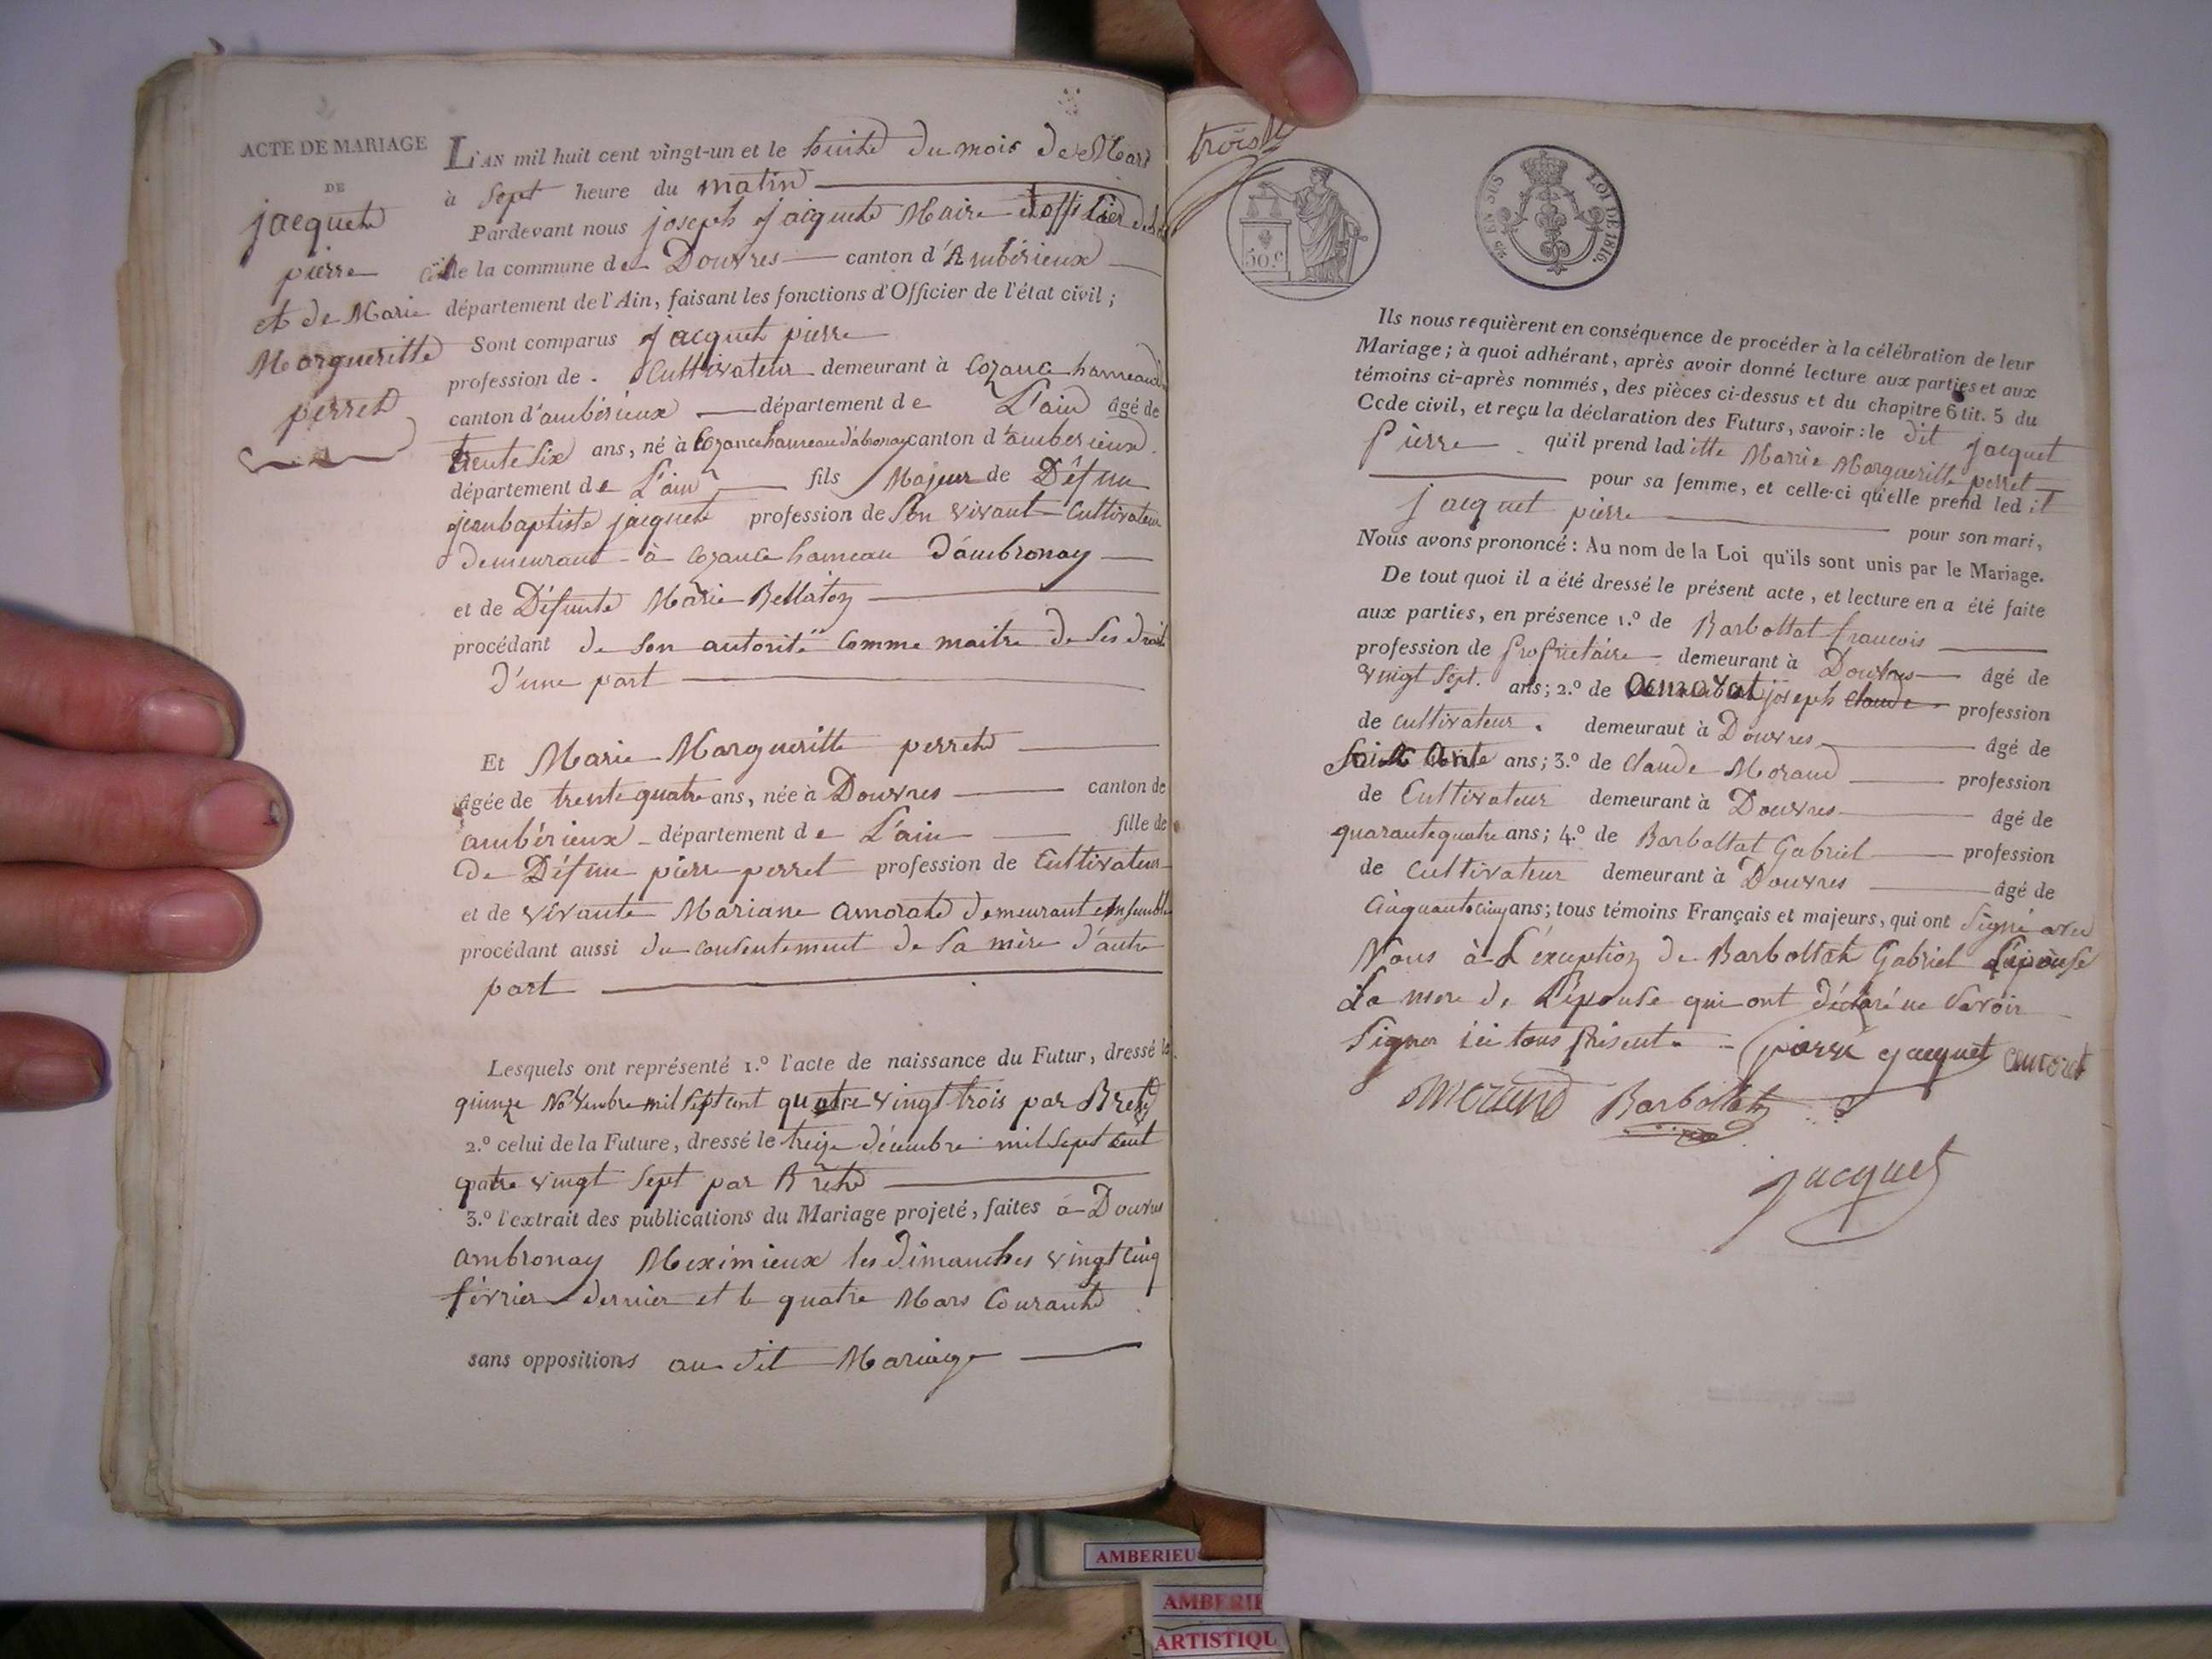 ACTE DE MARIAGE
DE
jacquet
pierre
et de Marie
Margueritte
perret
L'AN mil huit cent vingt-un et le huit du mois de Mars
à Sept heure du matin
Pardevant nous joseph jacquet Maire et officier de
de la commune de Douvres canton d'Ambérieux
département de l'Ain, faisant les fonctions d'Officier de l'état civil ;
Sont comparus jacquet pierre
profession de . Cultivateur demeurant à Cozance hameau
canton d'ambérieux département de L'ain âgé de
trente six ans, né à Cozance hameau d'abronay canton d'amberieux
département de L'ain fils Majeur de Défun
jeanbaptiste jacquet profession de Son vivant Cultivateur
demeurant à Cozance hameau D'ambronay
et de Défunte Marie Bellaton
procédant de Son autorité Comme maitre de Ses droit
d'une part
Et Marie Margueritte perret
âgée de trente quatre ans, née à Douvres canton de
ambérieux département de L'ain fille de
De Défun pierre perret profession de Cultivateur
et de vivante Mariane amorat demeurant ensemble
procédant aussi du consentement de Sa mère d'autre
part
Lesquels ont représenté 1.º l'acte de naissance du Futur, dressé le
quinze Novembre mil Sept cent quatre vingt trois par
2.º celui de la Future, dressé le treize décembre mil Sept cent
quatre vingt Sept par
3.º l'extrait des publications du Mariage projeté, faites à Douvres
ambronay Meximieux les dimanches vingt cinq
février dernier et le quatre Mars Courant
sans oppositions au dit Mariage
trois
50.C
EN SUS
LOI DE 1816.
Ils nous requièrent en conséquence de procéder à la célébration de leur
Mariage ; à quoi adhérant, après avoir donné lecture aux parties et aux
témoins ci-après nommés, des pièces ci-dessus et du chapitre 6 tit. 5 du
Code civil, et reçu la déclaration des Futurs, savoir : le dit jacquet
Pierre qu'il prend laditte Marie Margueritte perret
pour sa femme, et celle-ci qu'elle prend ledit
jacquet pierre pour son mari,
Nous avons prononcé : Au nom de la Loi qu'ils sont unis par le Mariage.
De tout quoi il a été dressé le présent acte, et lecture en a été faite
aux parties, en présence 1.º de Barbollat francois
profession de Proprietaire demeurant à Douvres âgé de
vingt Sept. ans ; 2.º de amorat joseph claude profession
de cultivateur . demeurant à Douvres âgé de
ans ; 3.º de claude Morand profession
de Cultivateur demeurant à Douvres âgé de
quarante quatre ans ; 4.º de Barbollat Gabriel profession
de cultivateur demeurant à Douvres âgé de
Cinquante cinq ans ; tous témoins Français et majeurs, qui ont Signé avec
Nous à L'exception de Barbollat Gabriel L'épouse
La mere de L'épouse qui ont déclaré ne Savoir
Signer ici tous présent. pierre jacquet amorat
Morand Barbollat
jacquet
AMBERIEU
AMBERIE
ARTISTIQU